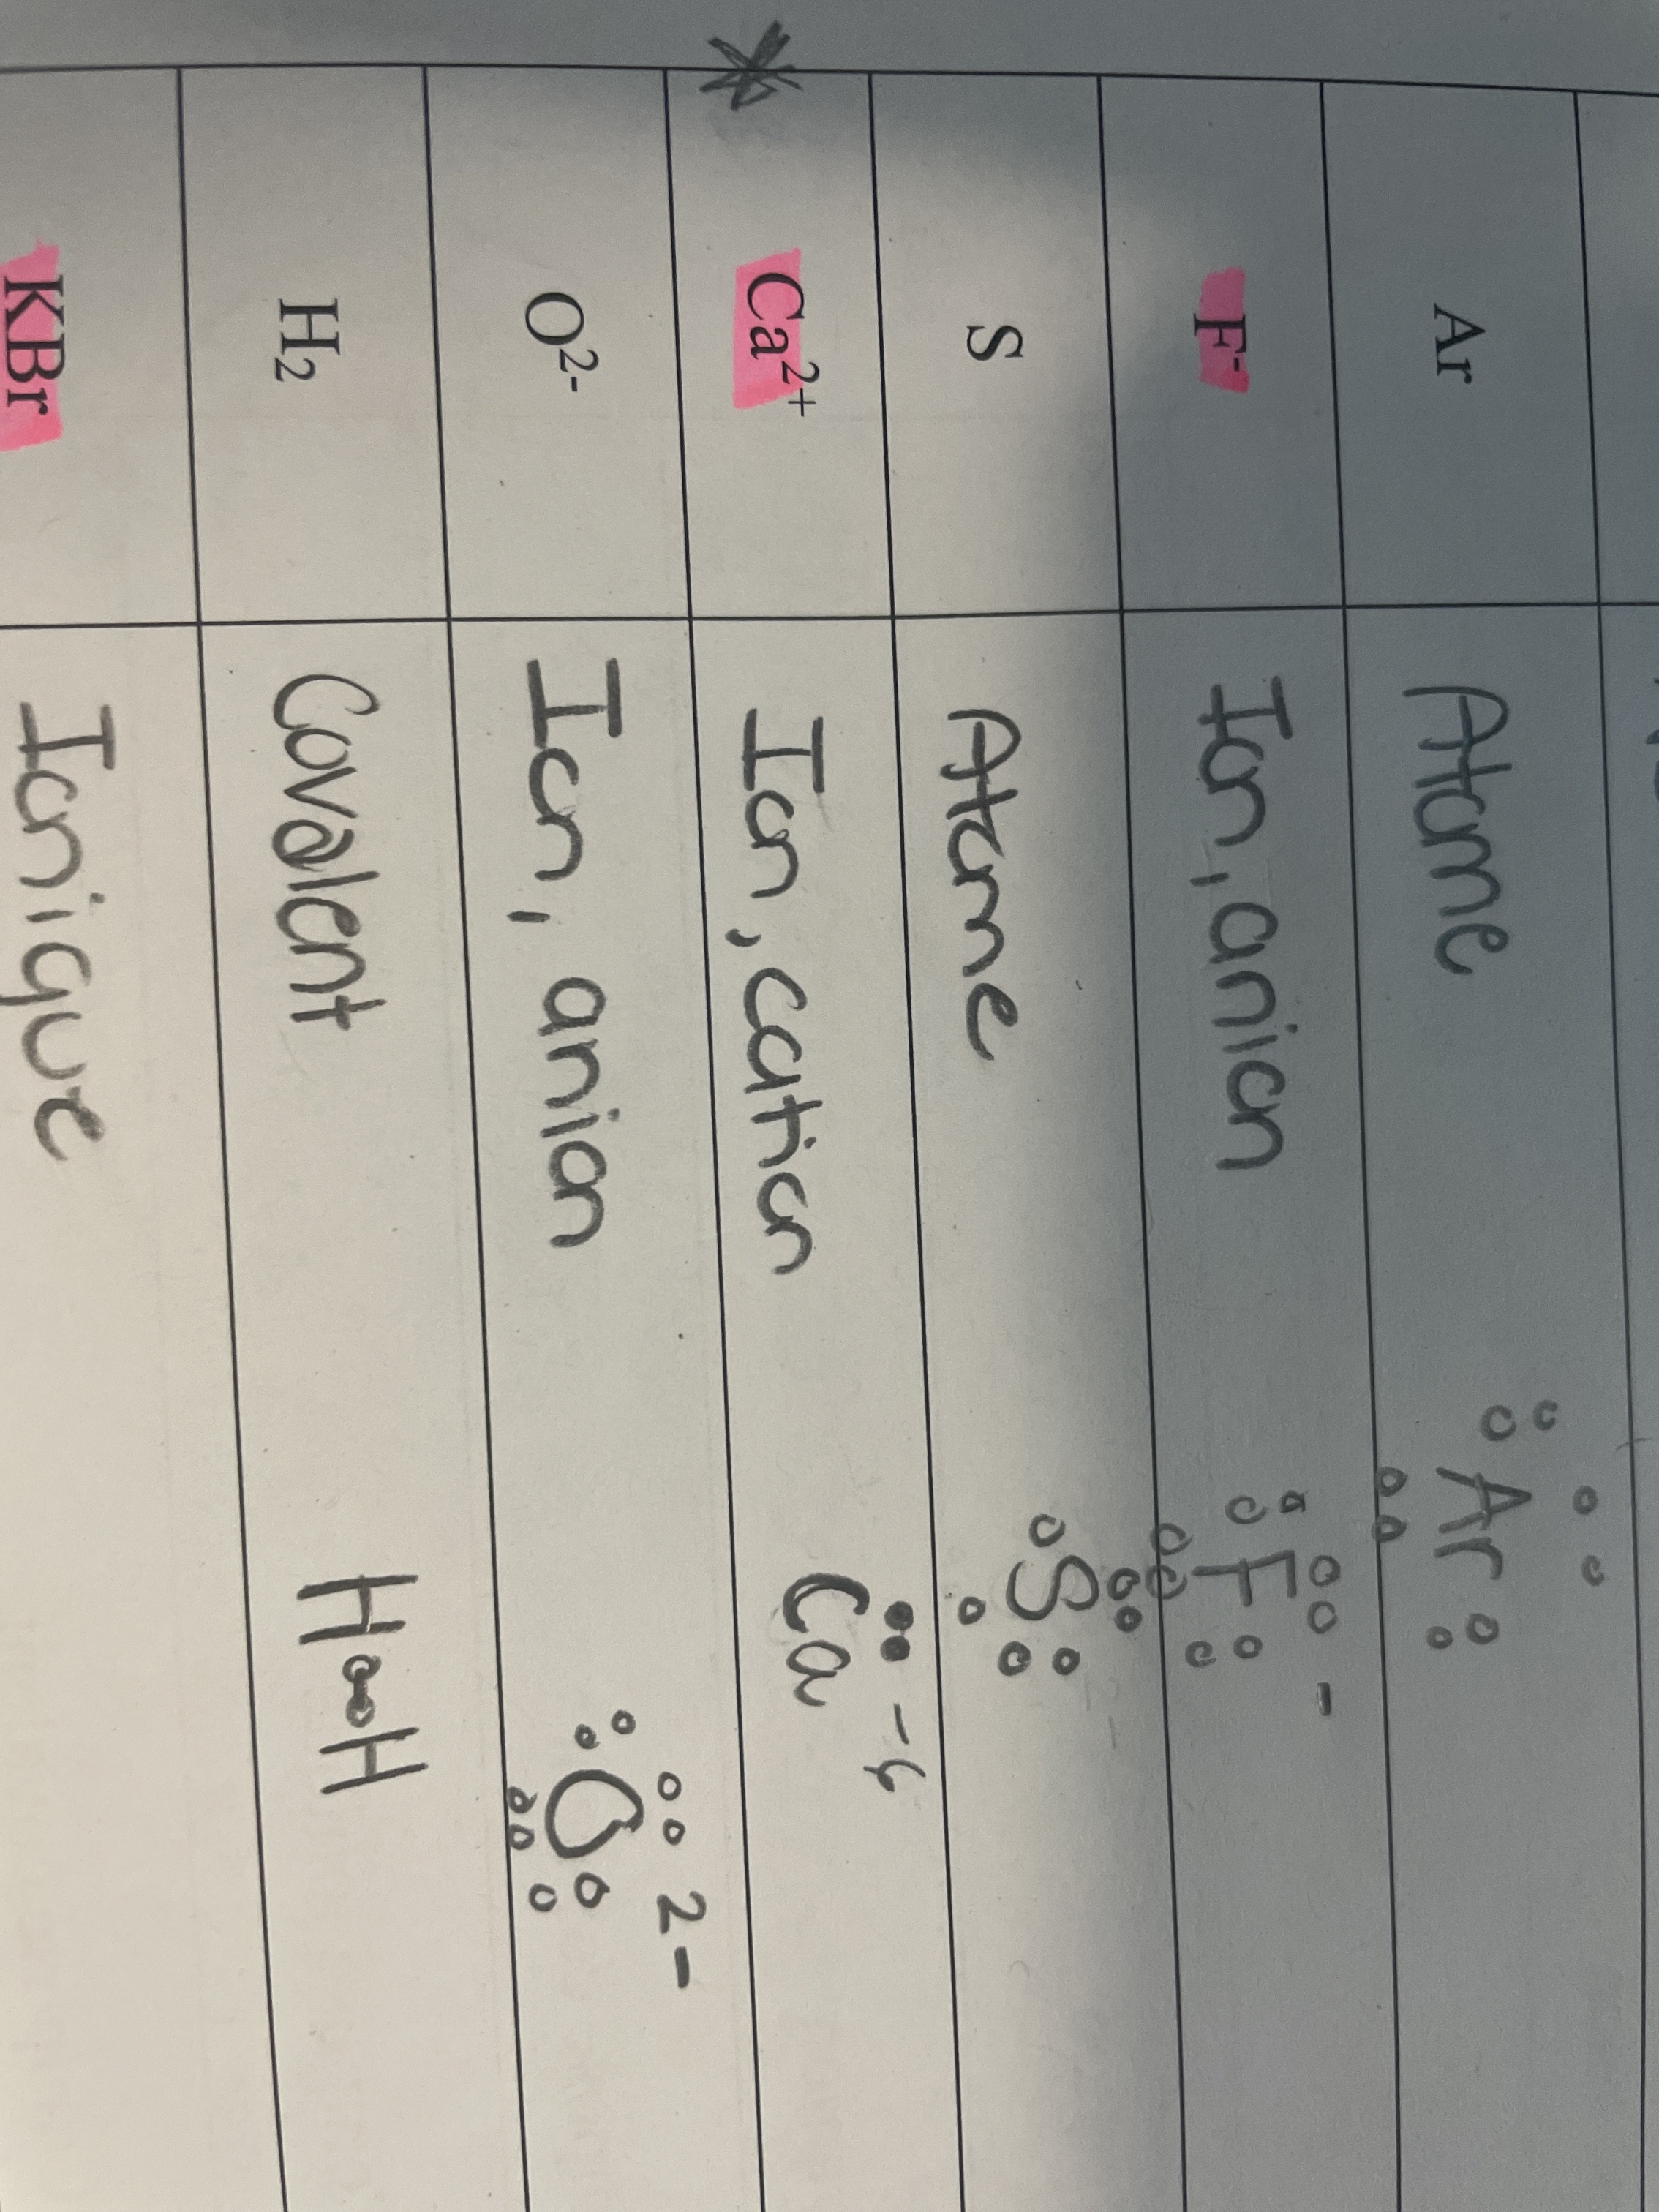 Ar Atome Ar
F⁻ Ion, anion F -
S Atome S
Ca²⁺ Ion, cation Ca
O²⁻ Ion, anion O 2-
H₂ Covalent H H
KBr Ionique